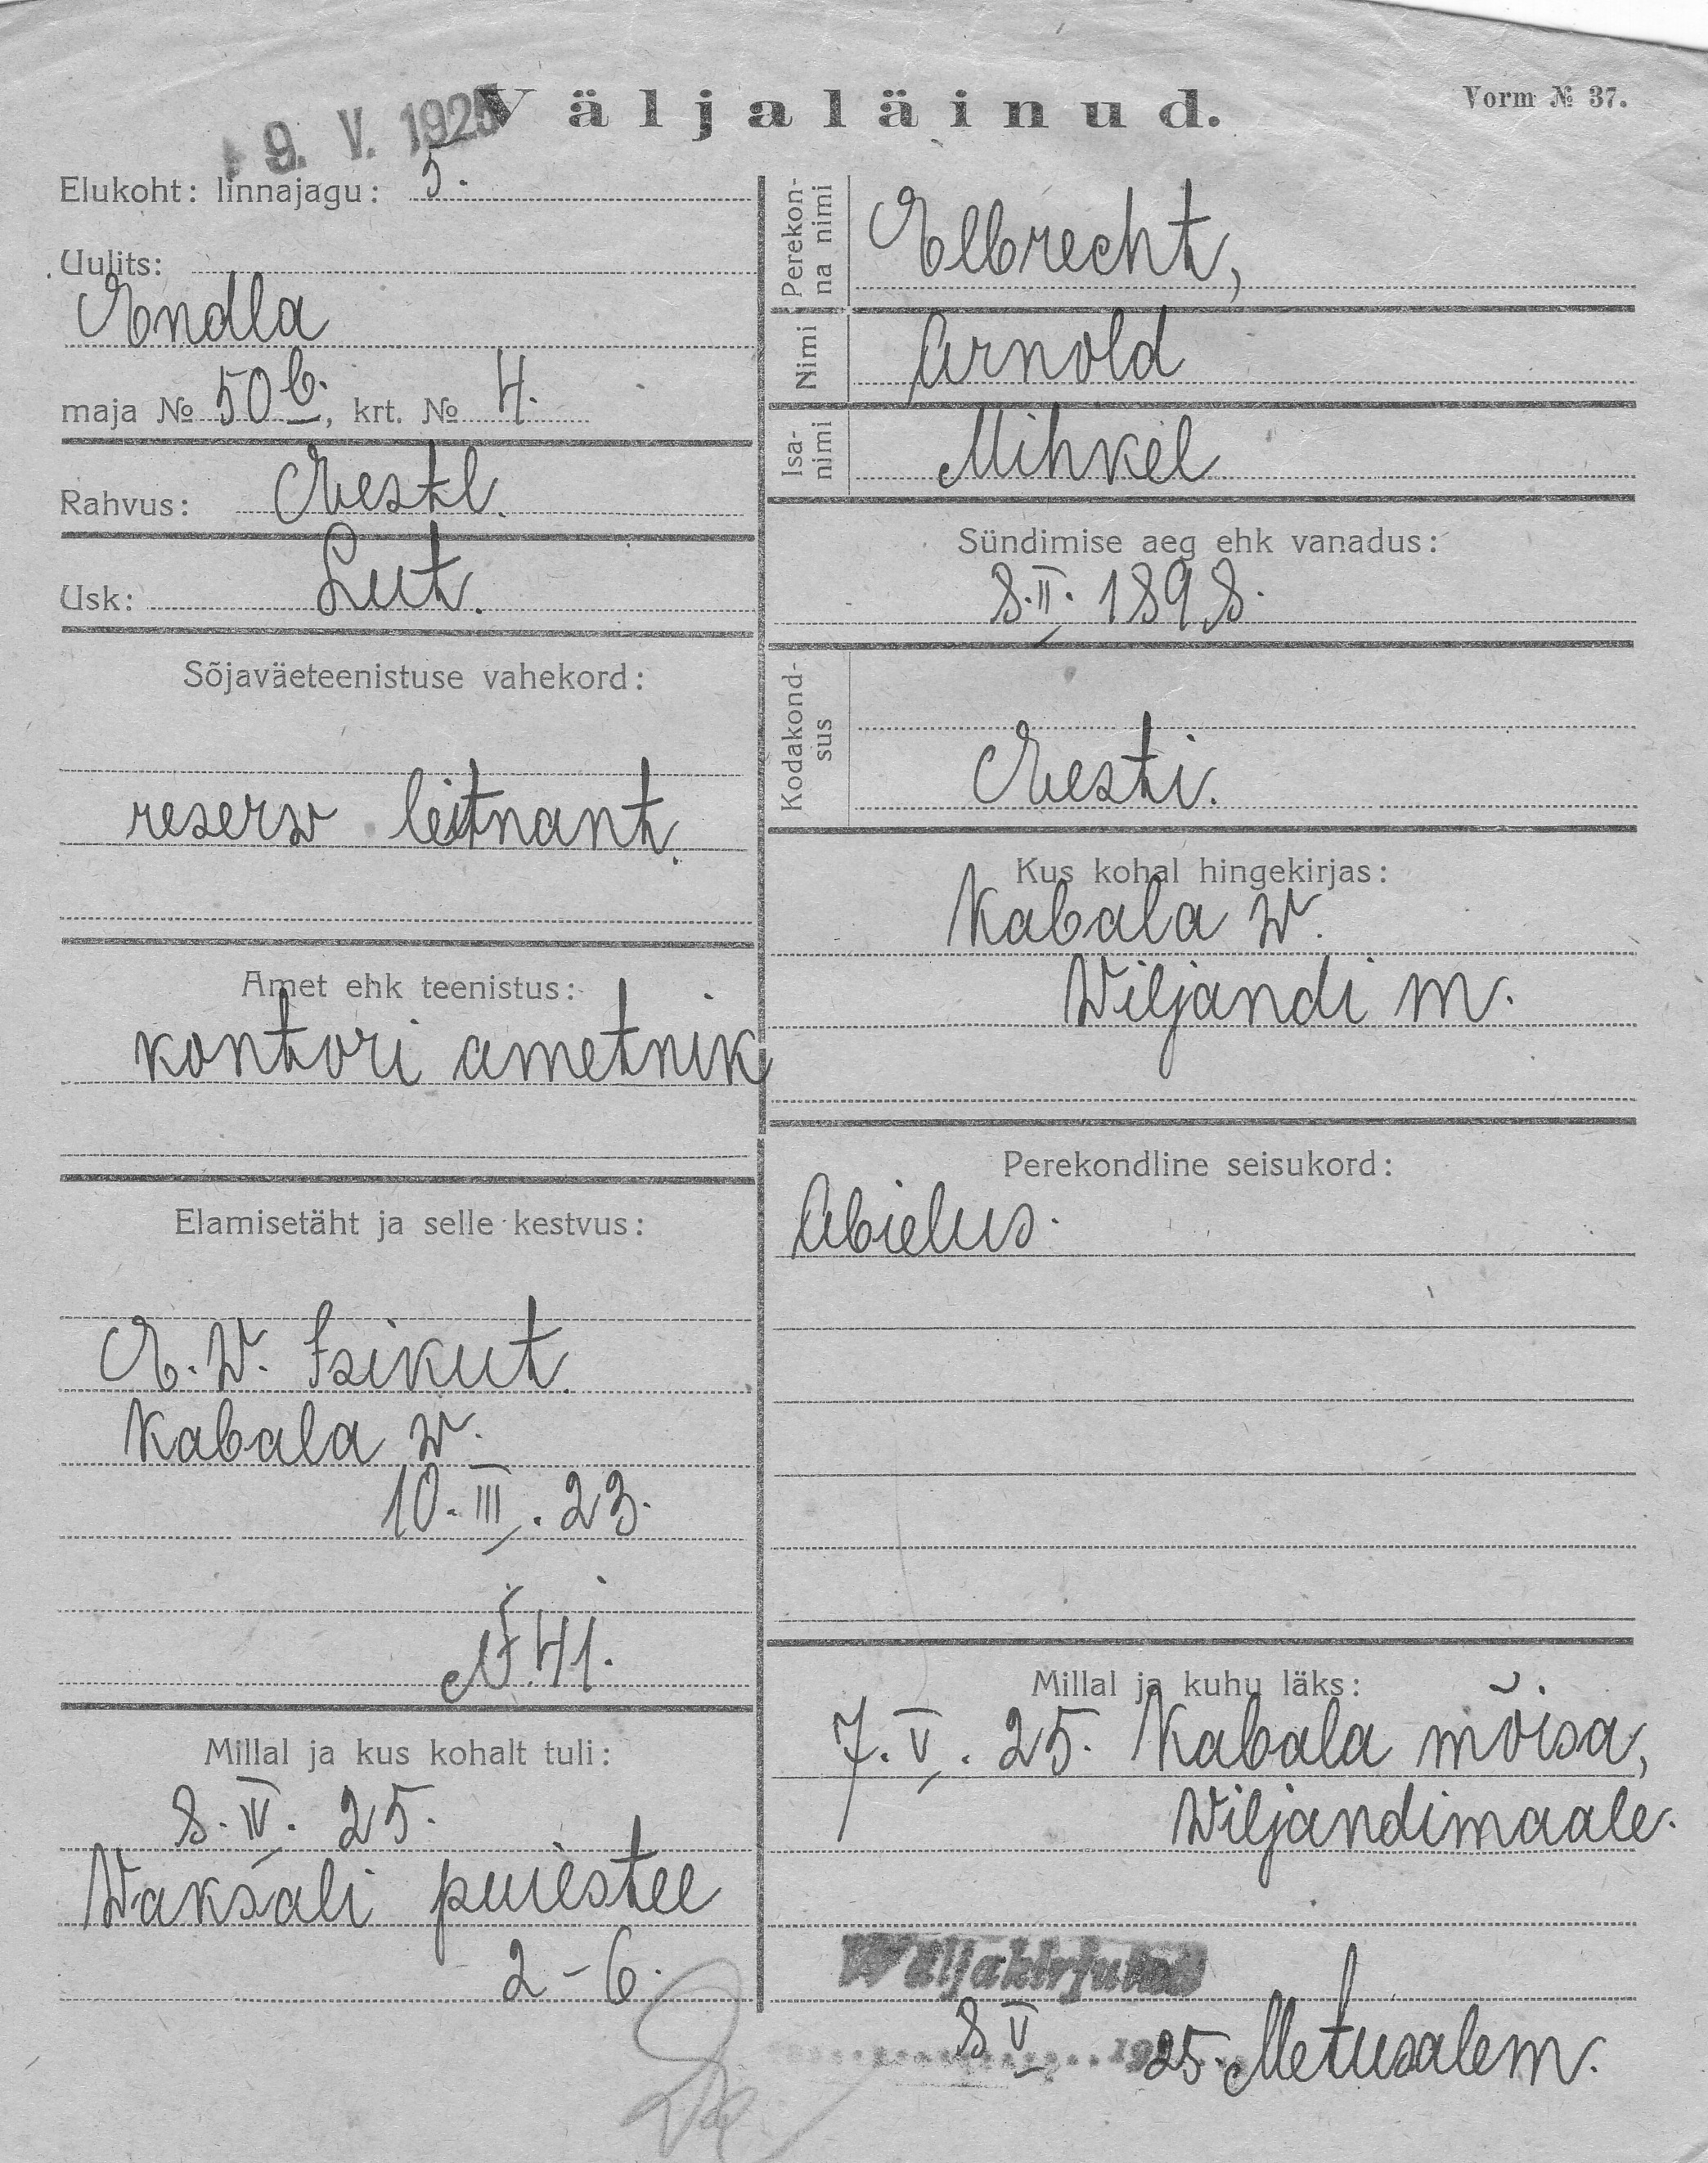 Väljaläinud.
Vorm № 37.
9. V. 1925
Elukoht: linnajagu: 5.
Uulits:
Endla
maja № 50 b., krt. № 4.
Rahvus: Eestl.
Usk: Lut.
Sõjaväeteenistuse vahekord:
reserv leitnant.
Amet ehk teenistus:
kontori ametnik
Elamisetäht ja selle kestvus:
E. W. Isikut.
Kabala w.
10. III. 23.
N. 41.
Millal ja kus kohalt tuli:
8. IV. 25.
Waksali puiestee
2-6.
Perekon-
na nimi
Elbrecht,
Nimi Arnold
Isa-
nimi
Mihkel
Sündimise aeg ehk vanadus:
8. II. 1898.
Kodakond-
sus
Eesti.
Kus kohal hingekirjas:
Kabala w.
Wiljandi m.
Perekondline seisukord:
Abielus.
Millal ja kuhu läks:
7. V. 25. Kabala mõisa,
Wiljandimaale.
Wäljakirjutud
8 V 1925. Metusalem.